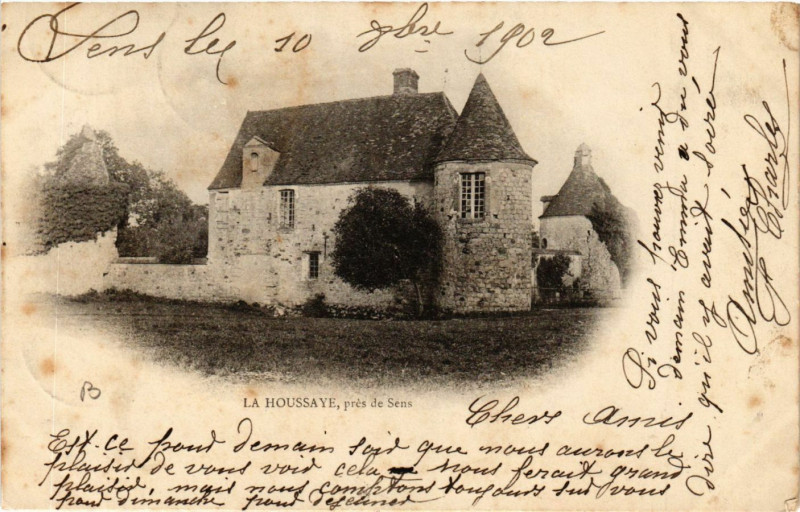 Sens le 10 Xbre 1902
LA HOUSSAYE, près de Sens
B
Chers Amis
Est-ce pour demain soir que nous aurons le
plaisir de vous voir cela nous ferait grand
plaisir, mais nous comptons toujours sur vous
pour dimanche pour dejeuner
Si vous pouvez venir
demain Emma a du vous
dire qu'il y avait soirée
Amitiés
Charles